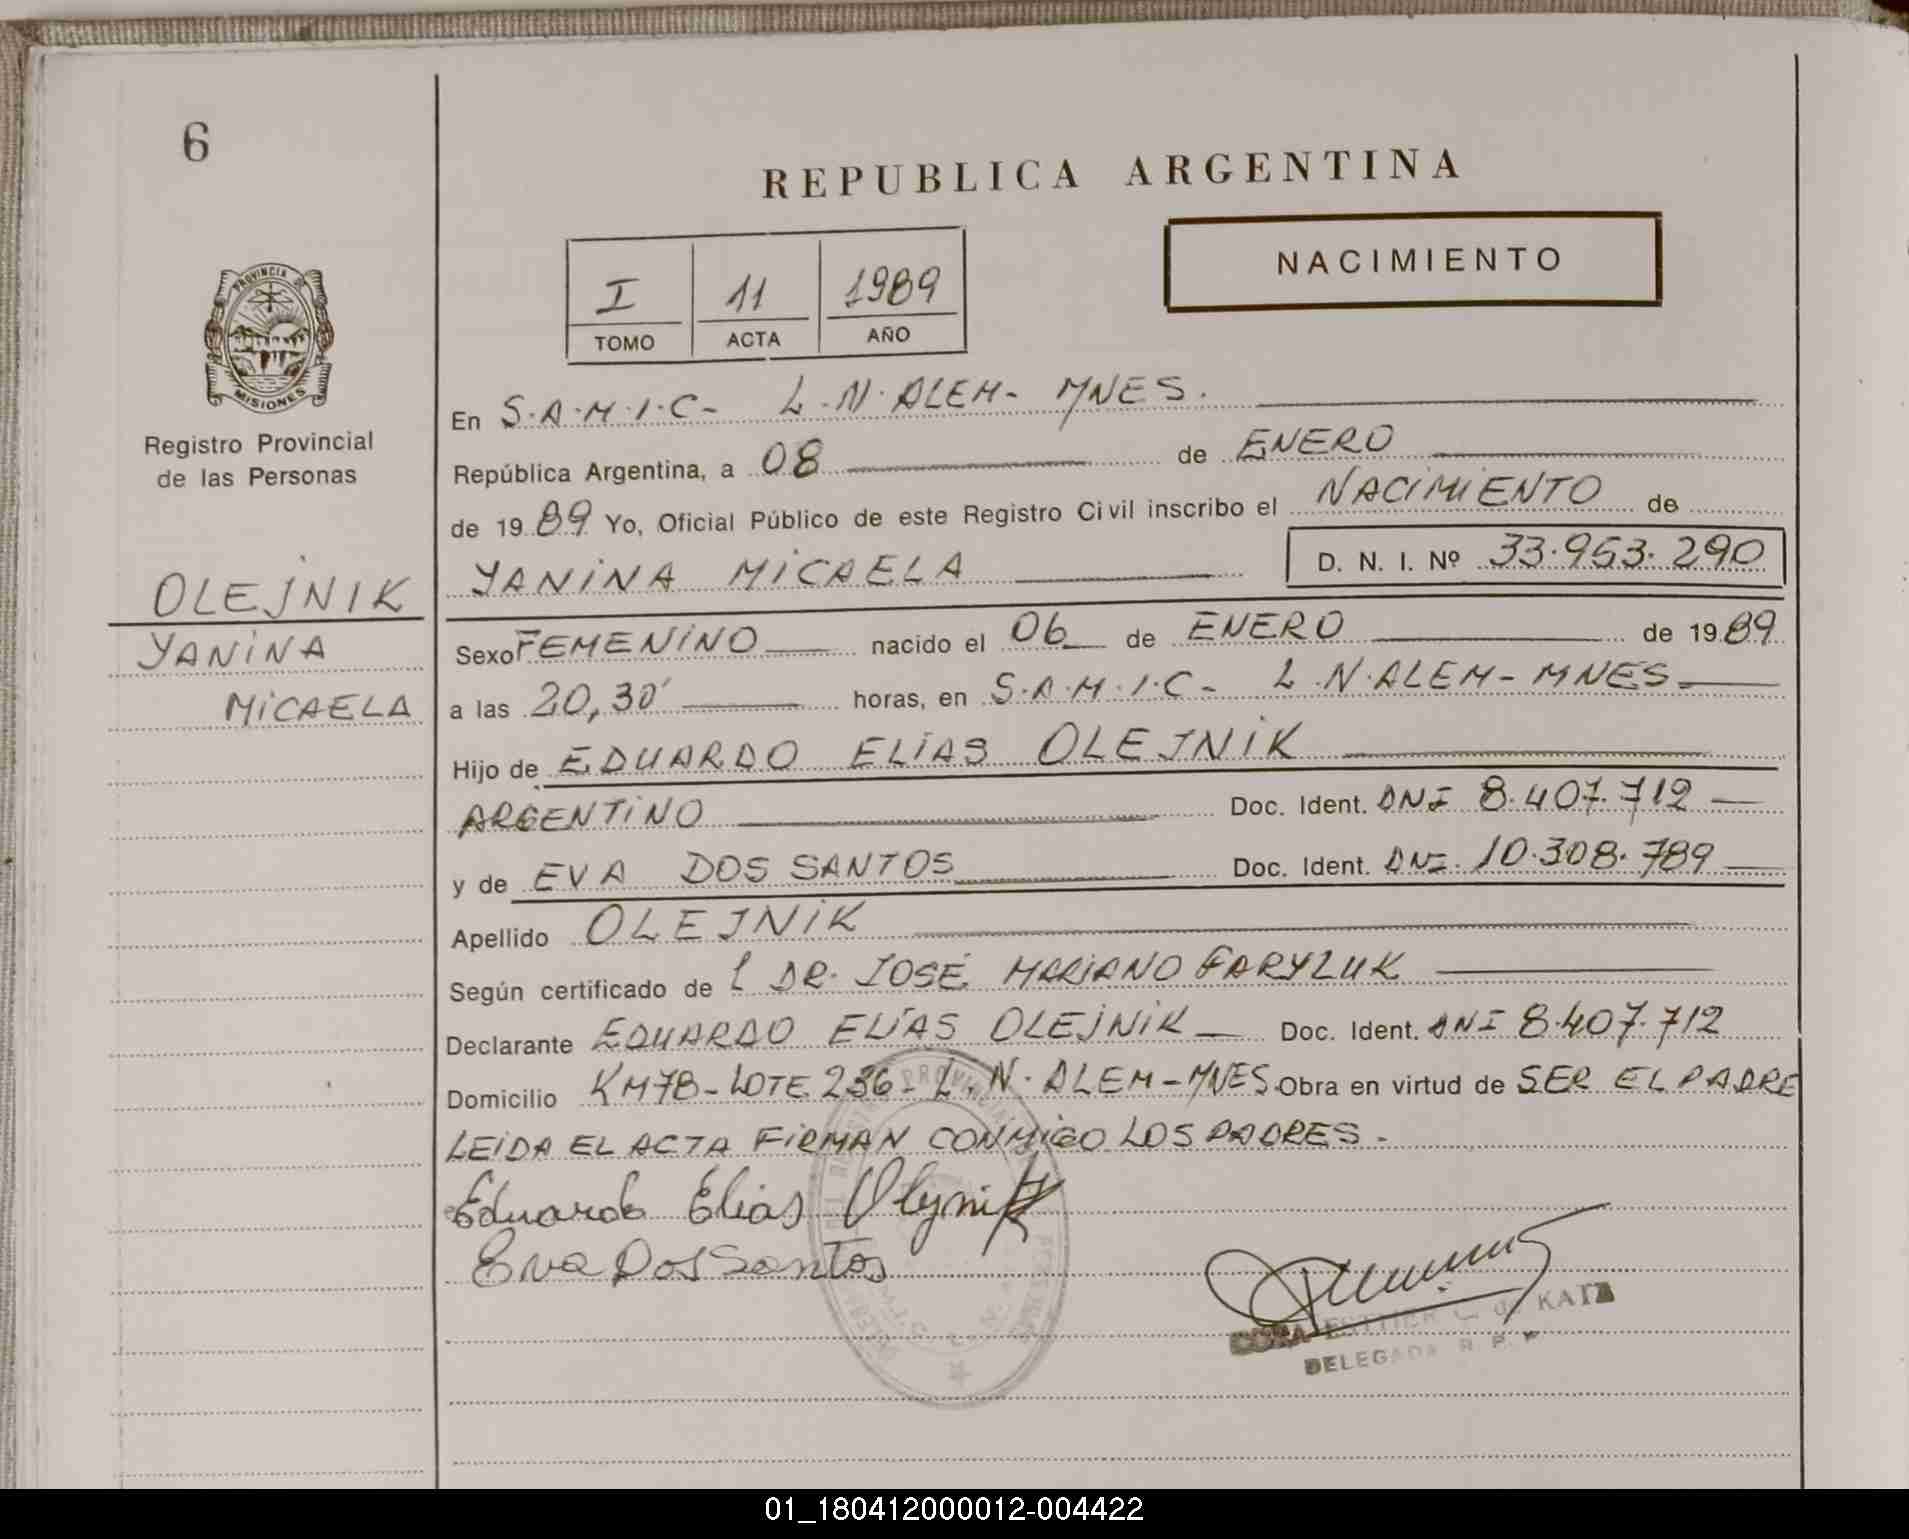 6
REPUBLICA ARGENTINA
NACIMIENTO
I 11 1989
TOMO ACTA AÑO
PROVINCIA DE
MISIONES
Registro Provincial
de las Personas
OLEJNIK
YANINA
MICAELA
En S.A.M.I.C- L.N.ALEM- MNES.
República Argentina, a 08 de ENERO
de 1989 Yo, Oficial Público de este Registro Civil inscribo el NACIMIENTO de
YANINA MICAELA D. N. I. Nº 33.953.290
Sexo FEMENINO nacido el 06 de ENERO de 1989
a las 20,30' horas, en S.A.M.I.C- L.N.ALEM-MNES-
Hijo de EDUARDO ELIAS OLEJNIK
ARGENTINO Doc. Ident. DNI 8.407.712
y de EVA DOS SANTOS Doc. Ident. DNI. 10.308.789
Apellido OLEJNIK
Según certificado de l DR. JOSÉ MARIANO FARYLUK
Declarante EDUARDO ELÍAS OLEJNIK Doc. Ident. DNI 8.407.712
Domicilio KM78-LOTE 236- L.N.ALEM-MNES. Obra en virtud de SER EL PADRE
LEIDA EL ACTA FIRMAN CONMIGO LOS PADRES-
Eduardo Elias Olejnik
Eva Dos Santos
ESTHER C. de KATZ
DELEGADA R. P. P.
01_180412000012-004422